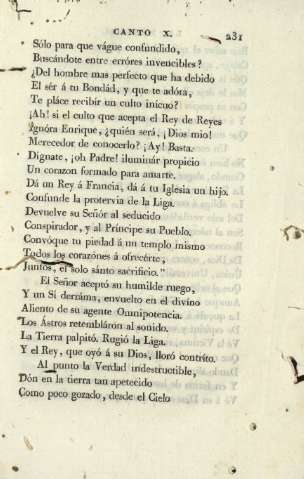 CANTO X. 231
Sólo para que vágue confundido,
Buscándote entre erróres invencibles?
¿Del hombre mas perfecto que ha debido
El sér á tu Bondád, y que te adóra,
Te pláce recibir un culto inicuo?
¡Ah! si el culto que acepta el Rey de Reyes
Ignóra Enrique, ¿quién será, ¡Dios mio!
Merecedor de conocerlo? ¡Ay! Basta.
Dígnate, ¡oh Padre! iluminár propicio
Un corazon formado para amarte.
Dá un Rey á Francia, dá á tu Iglesia un hijo.
Confunde la protervia de la Liga.
Devuelve su Señór al seducido
Conspirador, y al Príncipe su Pueblo.
Convóque tu piedád á un templo mismo
Todos los corazónes á ofrecérte,
Juntos, el solo sánto sacrificio."
El Señor aceptó su humilde ruego,
Y un Sí derráma, envuelto en el divino
Aliento de su agente Omnipotencia.
Los Astros retembláron al sonido.
La Tierra palpitó. Rugió la Liga.
Y el Rey, que oyó á su Dios, lloró contríto.
Al punto la Verdad indestructible,
Dón en la tierra tan apetecido
Como poco gozado, desde el Cielo